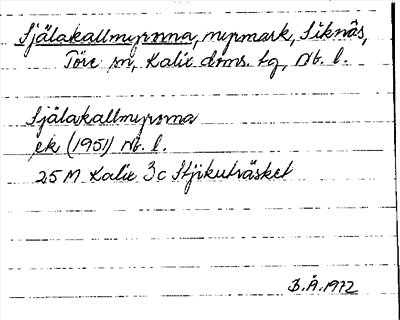 Själakallmyrorna, myrmark, Siknäs,
Töre sn, Kalix doms. tg, Nb. l.
Själakallmyrorna
ek (1951) Nb. l.
25 M Kalix 3c Stjikuträsket
B.Å. 1972